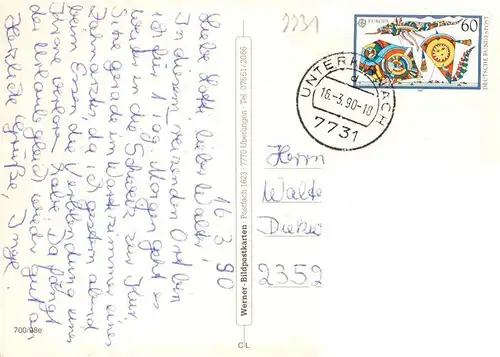 7731
EUROPA
60
DEUTSCHE BUNDESPOST
UNTERKIRNACH
d
16.-3.90-18
7731
16 3 90
Liebe Lotti, lieber Walter,
In diesem reizenden Ort bin
ich für 1 Tag. Morgen geht es
weiter in die Schweiz zur Kur.
Sitze gerade im Wartezimmer eines
Zahnarztes, da ich gestern abend
beim Essen die Verblendung einer
Krone verloren habe. Da fängt
der Urlaub gleich wieder gut an.
Herzliche Grüße, Inge.
Werner-Bildpostkarten · Postfach 1623 · 7770 Überlingen · Tel. 07551/2066
Herrn
Walte
2352
700/98e
C/L